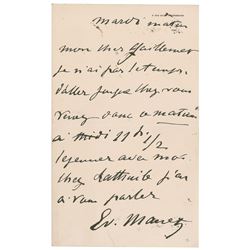 mardi matin
mon cher Guillemet
je n'ai pas le temps
d'aller jusque chez vous
venez donc ce matin
à midi 11 h 1/2
dejeuner avec moi
chez j'ai
à vous parler
Ed. Manet